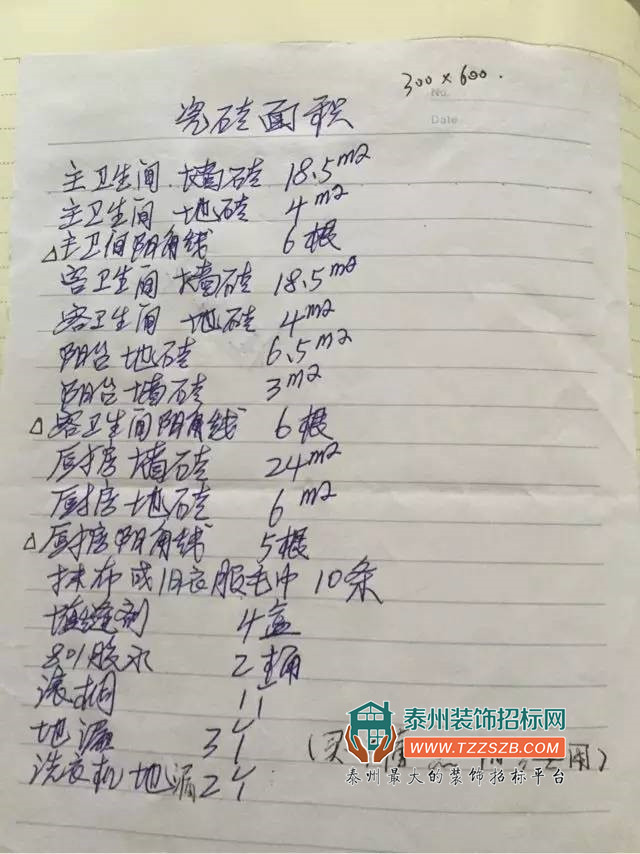 300×600.
No.
Date
瓷砖面积
主卫生间 墙砖 18.5m2
主卫生间 地砖 4m2
△主卫间阴角线 6根
客卫生间 墙砖 18.5m2
客卫生间 地砖 4m2
阳台地砖 6.5m2
阳台墙砖 3m2
△客卫生间阴角线 6根
厨房墙砖 24m2
厨房地砖 6m2
△厨房阴角线 5根
抹布或旧衣服毛巾 10条
填缝剂 4盒
801胶水 2桶
滚桐 1个
地漏 3个
洗衣机地漏2个
(买
用)
泰州装饰招标网
WWW.TZZSZB.COM
泰州最大的装饰招标平台